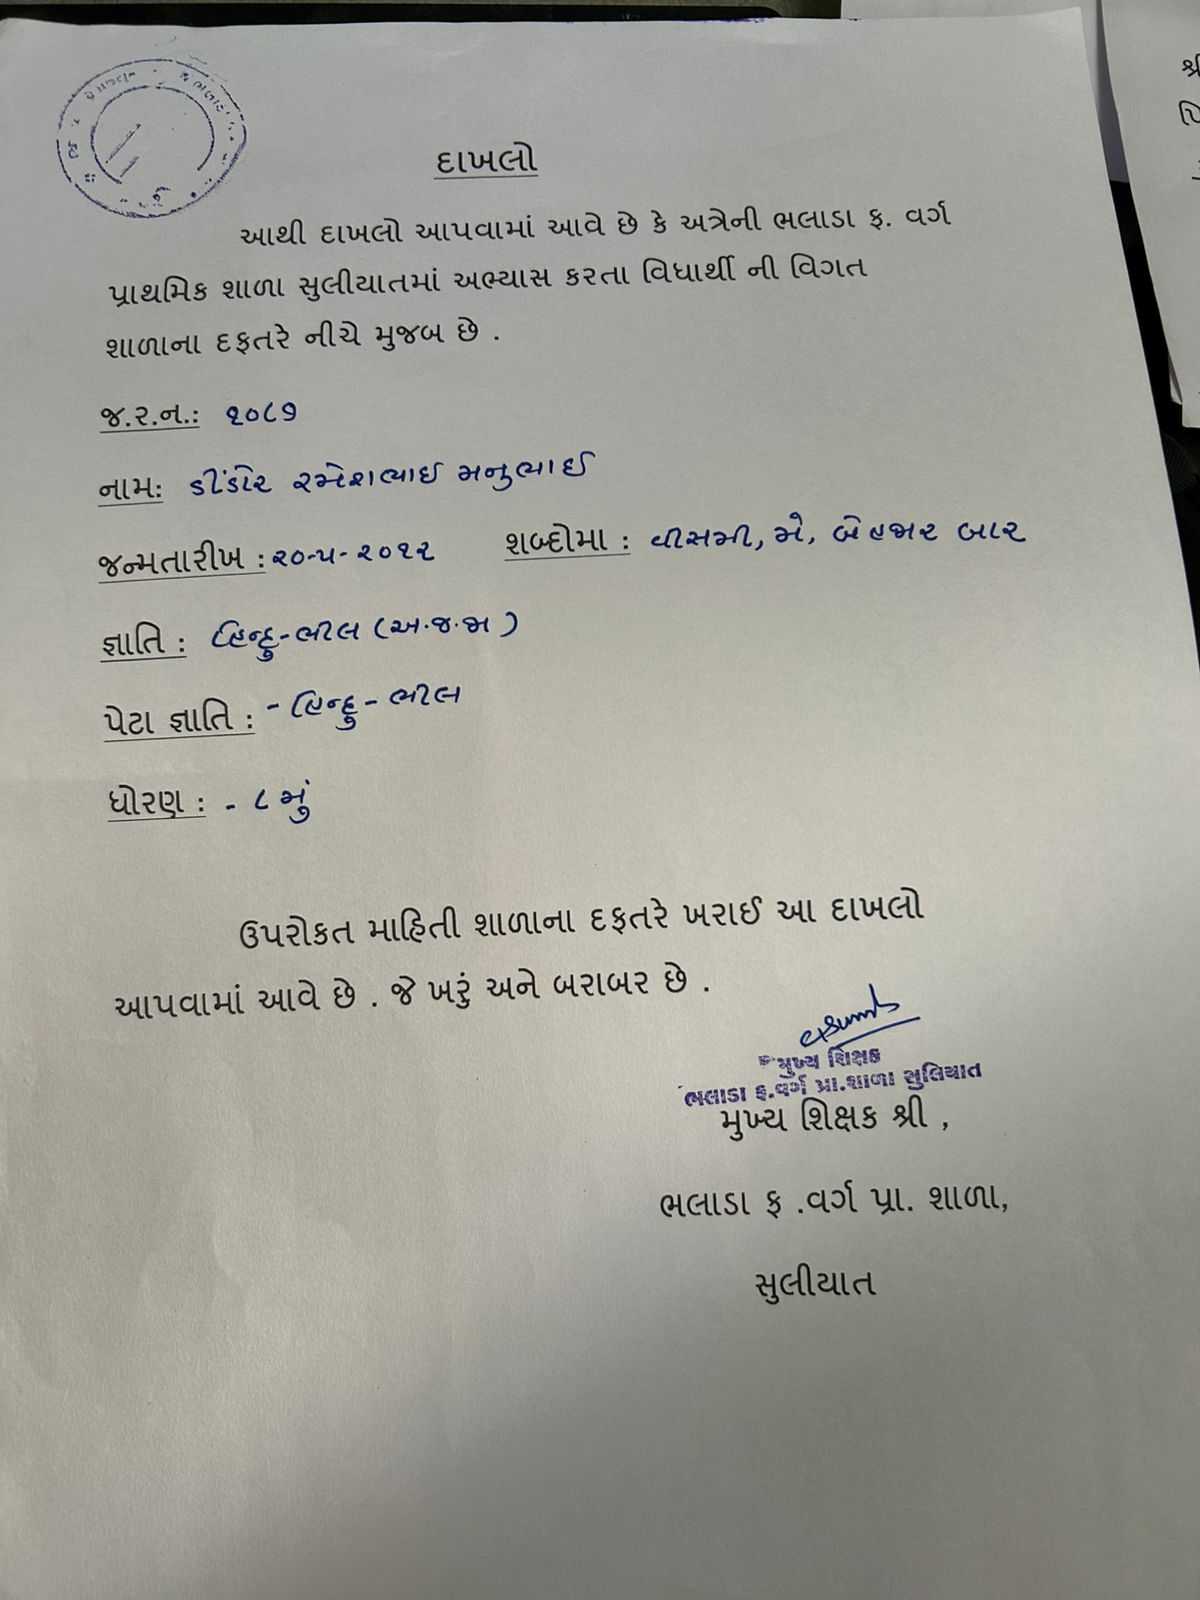 દાખલો
આથી દાખલો આપવામાં આવે છે કે અત્રેની ભલાડા ફ. વર્ગ
પ્રાથમિક શાળા સુલીયાતમાં અભ્યાસ કરતા વિધાર્થી ની વિગત
શાળાના દફતરે નીચે મુજબ છે .
જ.ર.ન.: ૧૦૮૭
નામ: ડીંડોર રમેશભાઇ મનુભાઈ
જન્મતારીખ : ૨૦-૫-૨૦૧૨ શબ્દોમા : વીસમી, મે, બેહજાર બાર
જ્ઞાતિ : હિન્દુ-ભીલ (અ.જ.જા)
પેટા જ્ઞાતિ : - હિન્દુ - ભીલ
ધોરણ : - ૮ મું
ઉપરોક્ત માહિતી શાળાના દફતરે ખરાઈ આ દાખલો
આપવામાં આવે છે . જે ખરું અને બરાબર છે .
મુખ્ય શિક્ષક
ભલાડા ફ.વર્ગ પ્રા.શાળા સુલિયાત
મુખ્ય શિક્ષક શ્રી ,
ભલાડા ફ .વર્ગ પ્રા. શાળા,
સુલીયાત